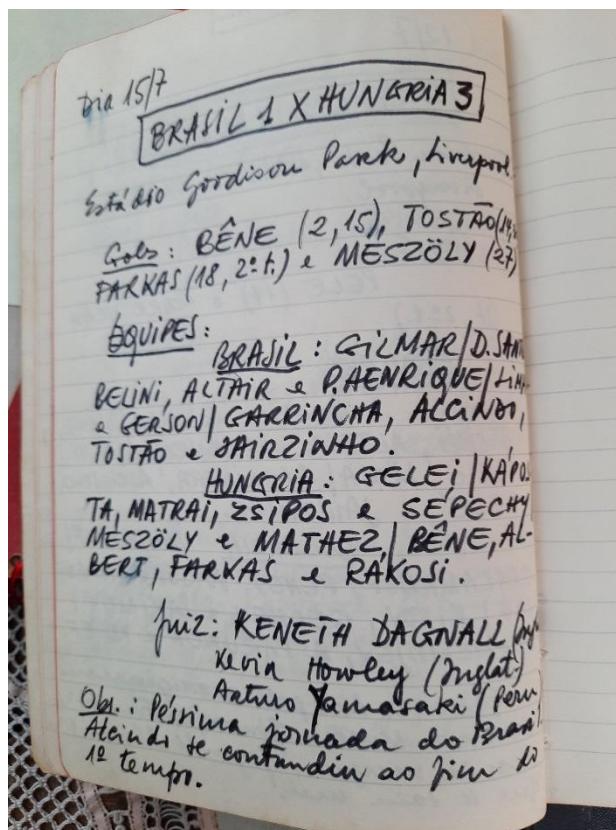 Dia 15/7
BRASIL 1 X HUNGRIA 3
Estádio Goodison Park, Liverpool.
Gols: BÊNE (2,15), TOSTÃO (14,
FARKAS (18, 2º t.) e MESZÖLY (27)
EQUIPES:
BRASIL: GILMAR/D. SANT
BELINI, ALTAIR e P. HENRIQUE/LIMA
e GERSON/GARRINCHA, ALCINDO,
TOSTÃO e JAIRZINHO.
HUNGRIA: GELEI/KÁPOS
TA, MATRAI, ZSIPOS e SEPECHY
MESZÖLY e MATHEZ/BÊNE, AL-
BERT, FARKAS e RAKOSI.
Juiz: KENETH DAGNALL (Ing
Kevin Howley (Inglat.)
Arturo Yamasaki (Peru
Obs.: Péssima jornada do Brasil.
Alcindo se contundiu ao fim do
1º tempo.